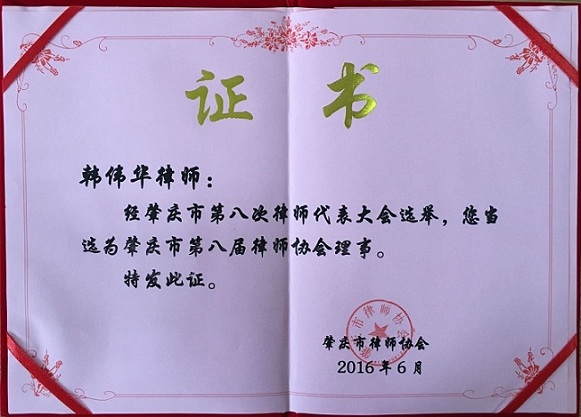 证书
韩伟华律师：
经肇庆市第八次律师代表大会选举，您当
选为肇庆市第八届律师协会理事。
特发此证。
肇庆市律师协会
2016年6月